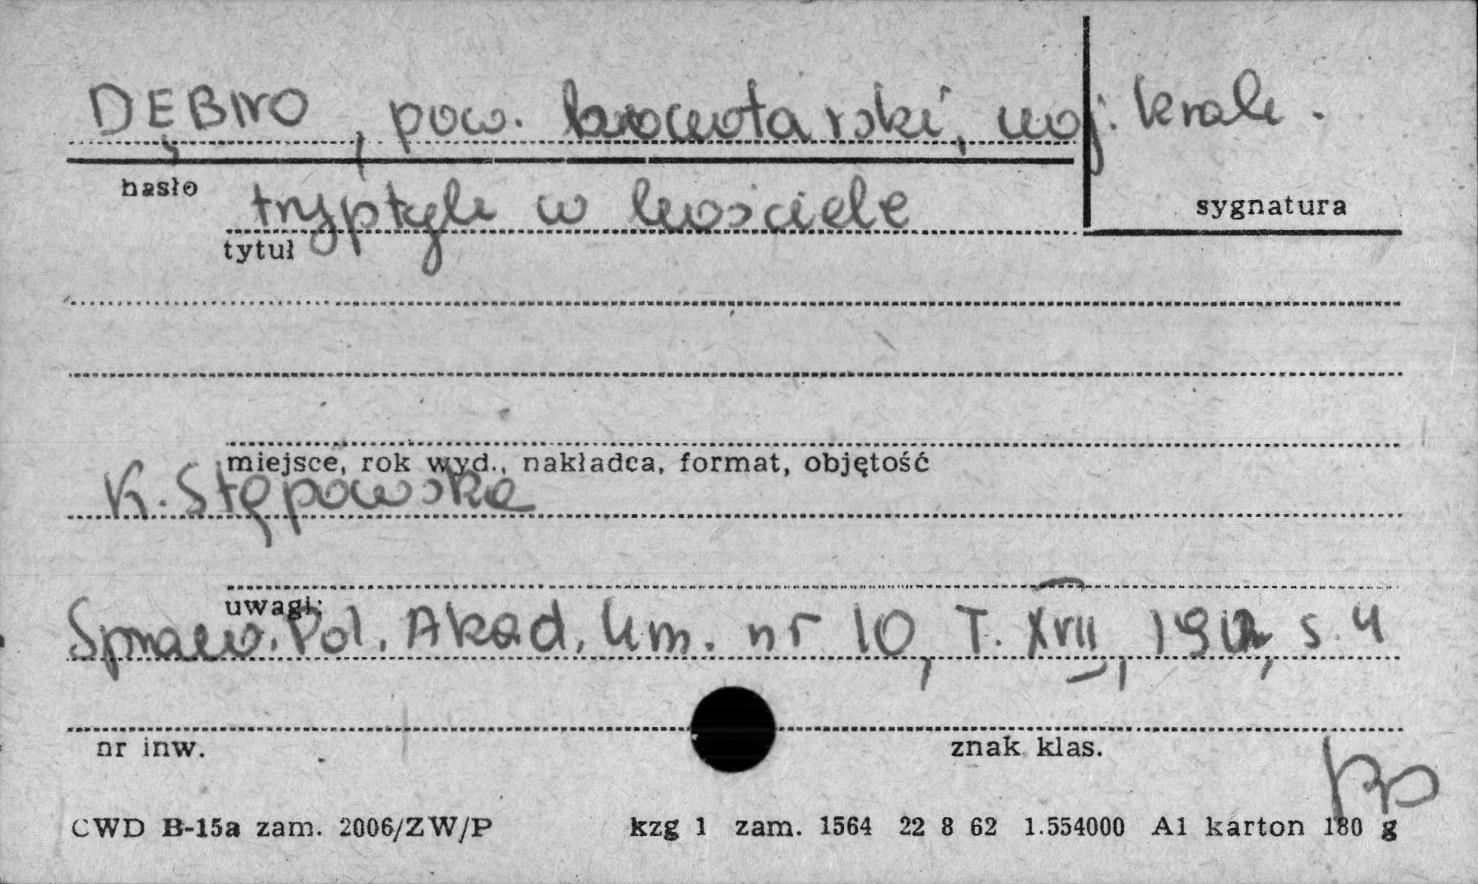 DĘBNO, pow. nowotarski, woj. krak.
hasło
sygnatura
tryptyk w kościele
tytuł
miejsce, rok wyd., nakładca, format, objętość
K. Stępowska
uwagi:
Spraw. Pol. Akad. Um. nr 10, T. XVII, 1912, s. 4
nr inw.
znak klas.
CWD B-15a zam. 2006/ZW/P kzg 1 zam. 1564 22 8 62 1.554000 A1 karton 180 g